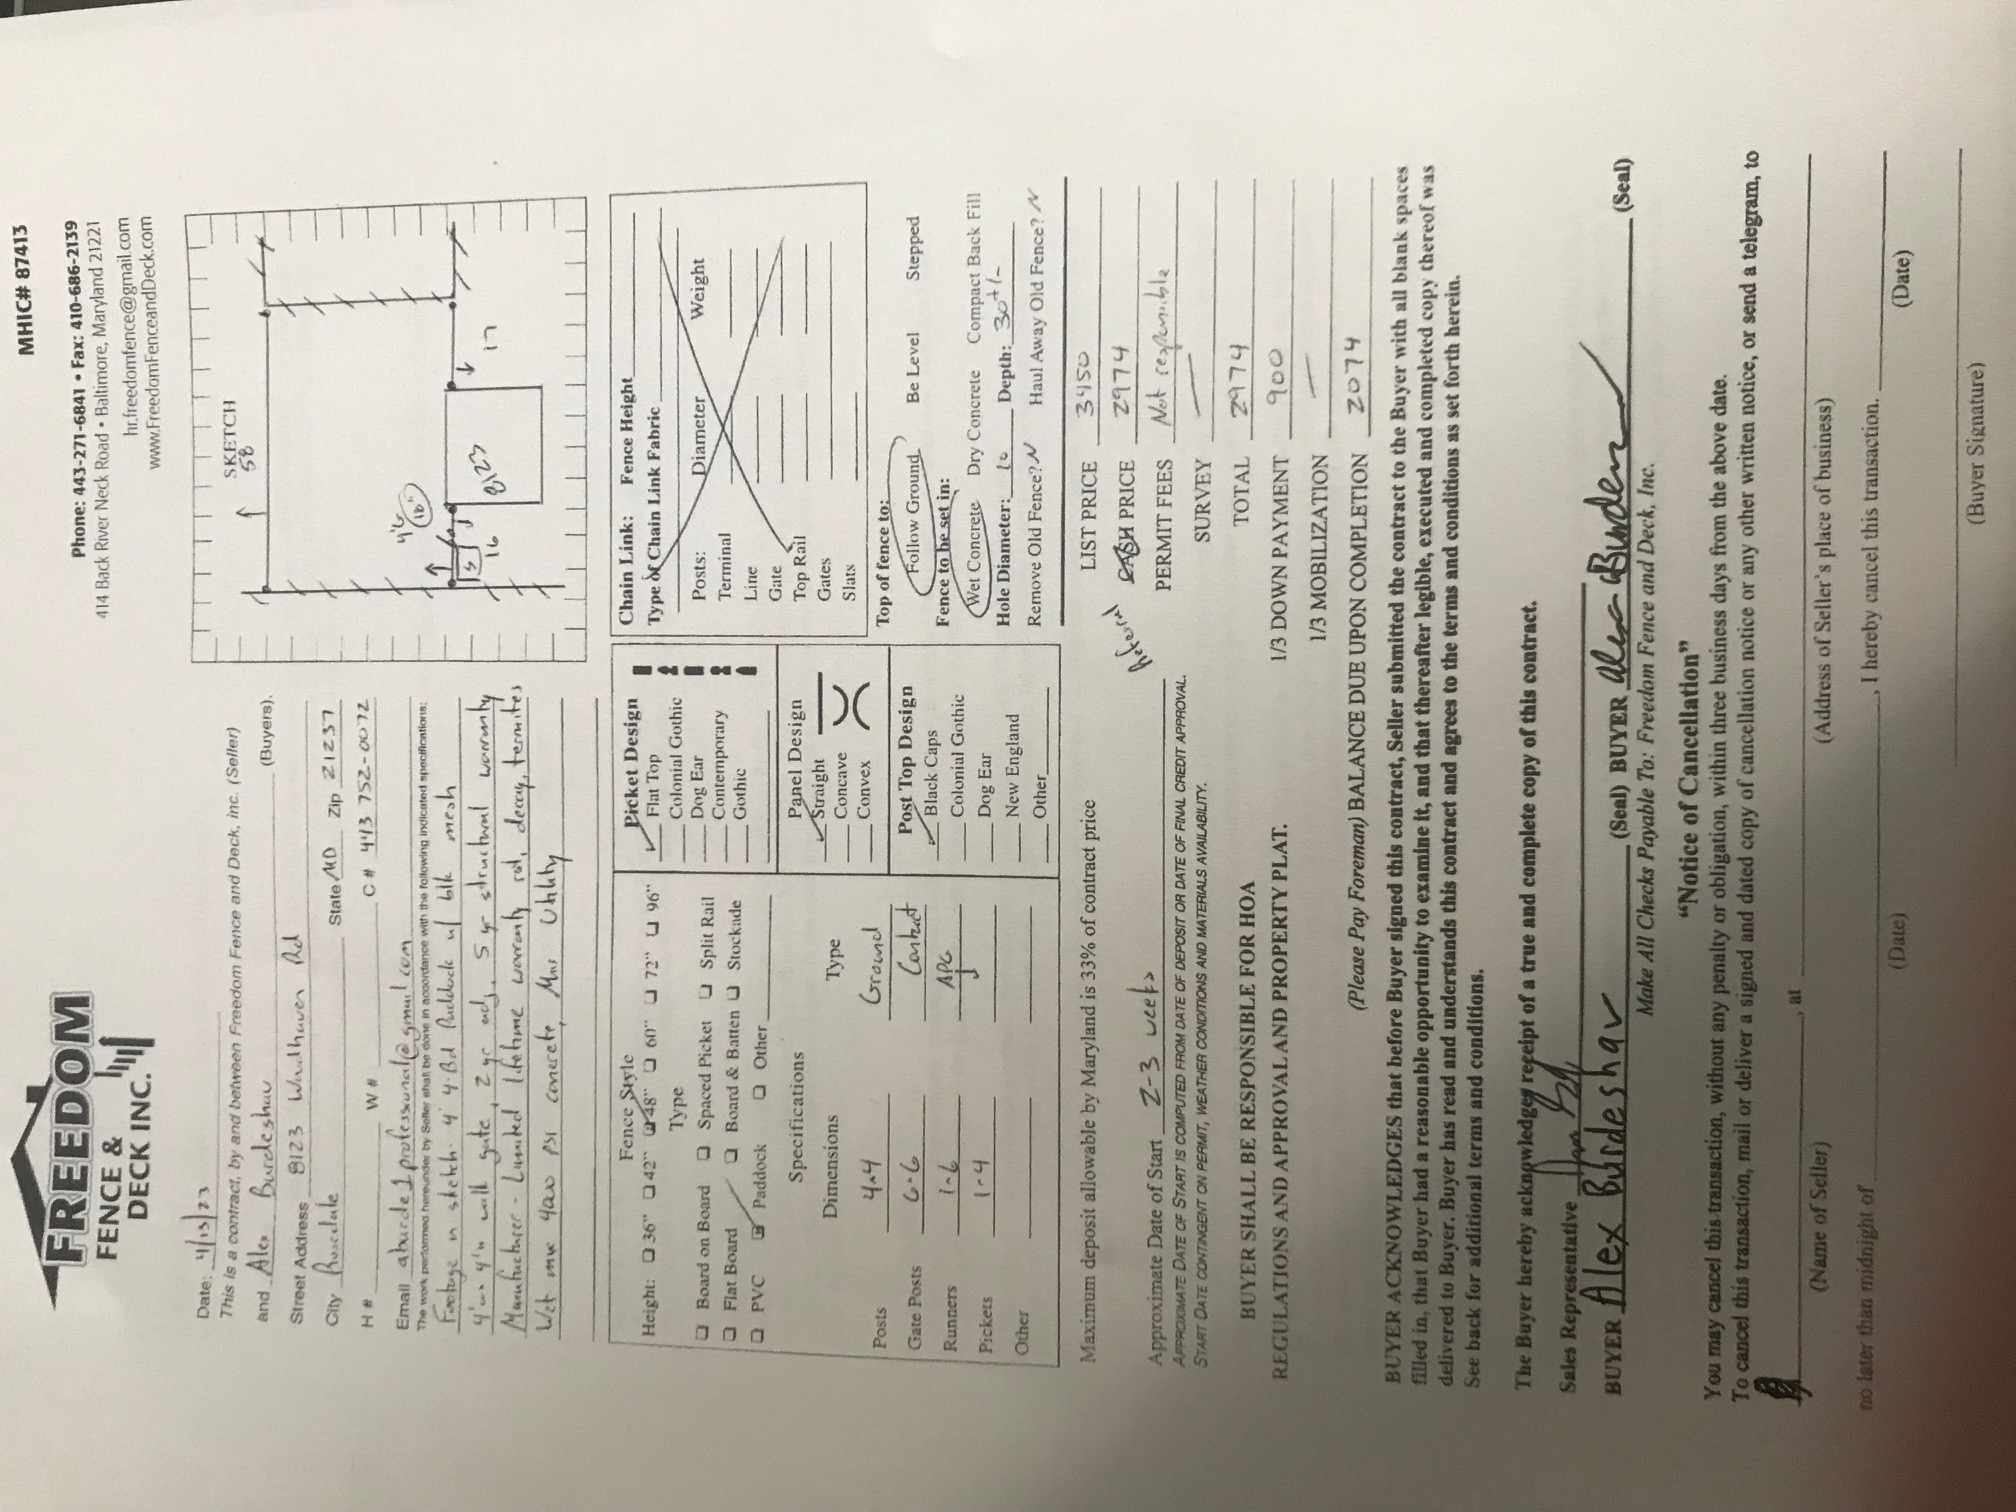 MHIC# 87413
FREEDOM
FENCE &
DECK INC.
Phone: 443-271-6841 • Fax: 410-686-2139
414 Back River Neck Road • Baltimore, Maryland 21221
hr.freedomfence@gmail.com
www.FreedomFenceandDeck.com
Date: 4/13/23
This is a contract, by and between Freedom Fence and Deck, inc. (Seller)
and Alex Burdeshaw (Buyers).
Street Address 8123 Woodhaven Rd
City Rosedale State MD Zip 21237
H # W # C # 443 752-0072
Email aburde1professional@gmail.com
The work performed hereunder by Seller shall be done in accordance with the following indicated specifications:
Footage in sketch. 4' 4-Bd Paddock w/ blk mesh
4' 4' walk gate, 2 yr adj, 5 yr structural warranty
Manufacturer - Limited lifetime warranty rot, decay, termites
Wet mix 4000 PSI concrete, Miss Utility
SKETCH
58
18"
5
16
8123
17
Fence Style
Height: 36" 42" 48" 60" 72" 96"
Type
Board on Board Spaced Picket Split Rail
Flat Board Board & Batten Stockade
PVC Paddock Other
Specifications
Dimensions Type
Posts 4-4 Ground
Gate Posts 6-6 Contact
Runners 1-6
Pickets 1-4
Other
Picket Design
Flat Top
Colonial Gothic
Dog Ear
Contemporary
Gothic
Panel Design
Straight
Concave
Convex
Post Top Design
Black Caps
Colonial Gothic
Dog Ear
New England
Other
Chain Link: Fence Height
Type of Chain Link Fabric
Posts: Diameter Weight
Terminal
Line
Gate
Top Rail
Gates
Slats
Top of fence to:
Follow Ground Be Level Stepped
Fence to be set in:
Wet Concrete Dry Concrete Compact Back Fill
Hole Diameter: 10 Depth: 30+/-
Remove Old Fence? N Haul Away Old Fence? N
Maximum deposit allowable by Maryland is 33% of contract price
Approximate Date of Start 2-3 weeks
APPROXIMATE DATE OF START IS COMPUTED FROM DATE OF DEPOSIT OR DATE OF FINAL CREDIT APPROVAL.
START DATE CONTINGENT ON PERMIT, WEATHER CONDITIONS AND MATERIALS AVAILABILITY.
BUYER SHALL BE RESPONSIBLE FOR HOA
REGULATIONS AND APPROVAL AND PROPERTY PLAT.
LIST PRICE 3450
Referral CASH PRICE 2974
PERMIT FEES Not responsible
SURVEY —
TOTAL 2974
1/3 DOWN PAYMENT 900
1/3 MOBILIZATION —
(Please Pay Foreman) BALANCE DUE UPON COMPLETION 2074
BUYER ACKNOWLEDGES that before Buyer signed this contract, Seller submitted the contract to the Buyer with all blank spaces
filled in, that Buyer had a reasonable opportunity to examine it, and that thereafter legible, executed and completed copy thereof was
delivered to Buyer. Buyer has read and understands this contract and agrees to the terms and conditions as set forth herein.
See back for additional terms and conditions.
The Buyer hereby acknowledges receipt of a true and complete copy of this contract.
Sales Representative
BUYER Alex Burdeshaw (Seal) BUYER (Seal)
Make All Checks Payable To: Freedom Fence and Deck, Inc.
"Notice of Cancellation"
You may cancel this transaction, without any penalty or obligation, within three business days from the above date.
To cancel this transaction, mail or deliver a signed and dated copy of cancellation notice or any other written notice, or send a telegram, to
, at
(Name of Seller) (Address of Seller's place of business)
no later than midnight of , I hereby cancel this transaction.
(Date) (Date)
(Buyer Signature)